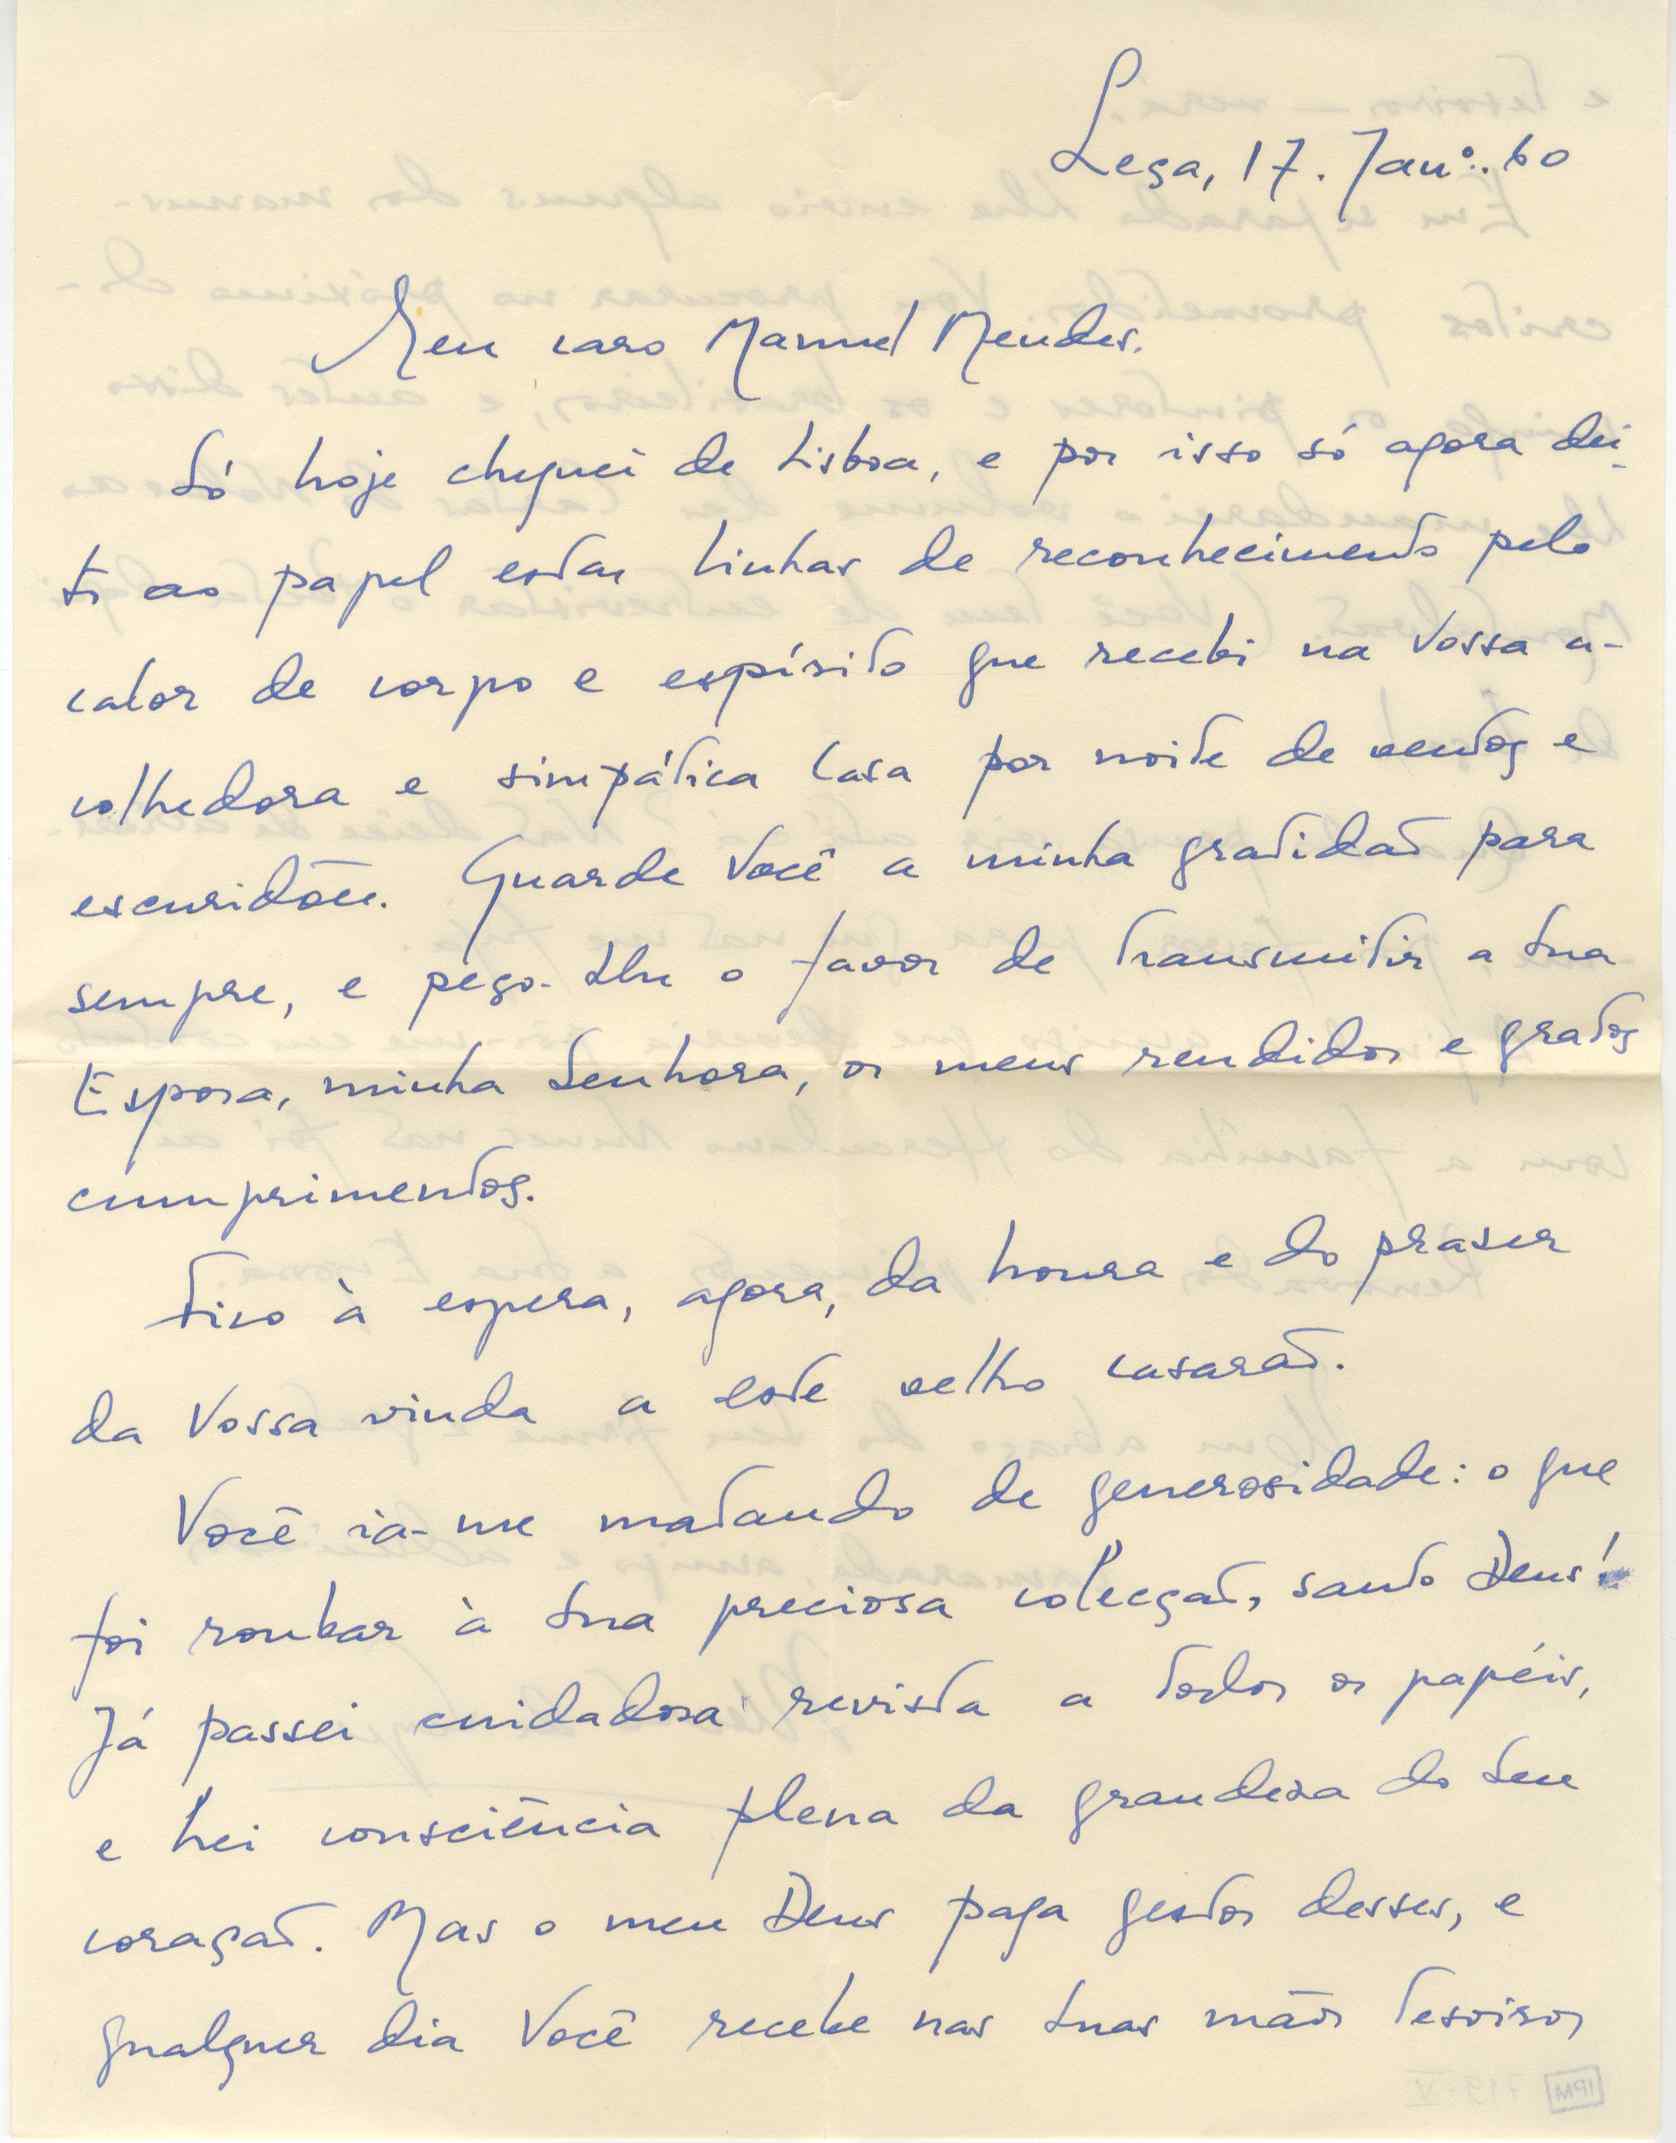 Leça, 17. Janº. 60
Meu caro Manuel Mendes.
Só hoje cheguei de Lisboa, e por isso só agora dei-
to ao papel estas linhas de reconhecimento pelo
calor de corpo e espírito que recebi na Vossa a-
colhedora e simpática Casa por noite de ventos e
escuridões. Guarde Você a minha gratidão para
sempre, e peço-Lhe o favor de transmitir a Sua
Esposa, minha Senhora, os meus rendidos e gratos
cumprimentos.
Fico à espera, agora, da honra e do praser
da Vossa vinda a este velho casarão.
Você ia-me matando de generosidade: o que
foi roubar à Sua preciosa colecção, santo Deus!
Já passei cuidadosa revista a todos os papéis,
e hei consciência plena da grandesa do Seu
coração. Mas o meu Deus paga gestos desses, e
qualquer dia Você recebe nas Suas mãos tesoiros
IPM